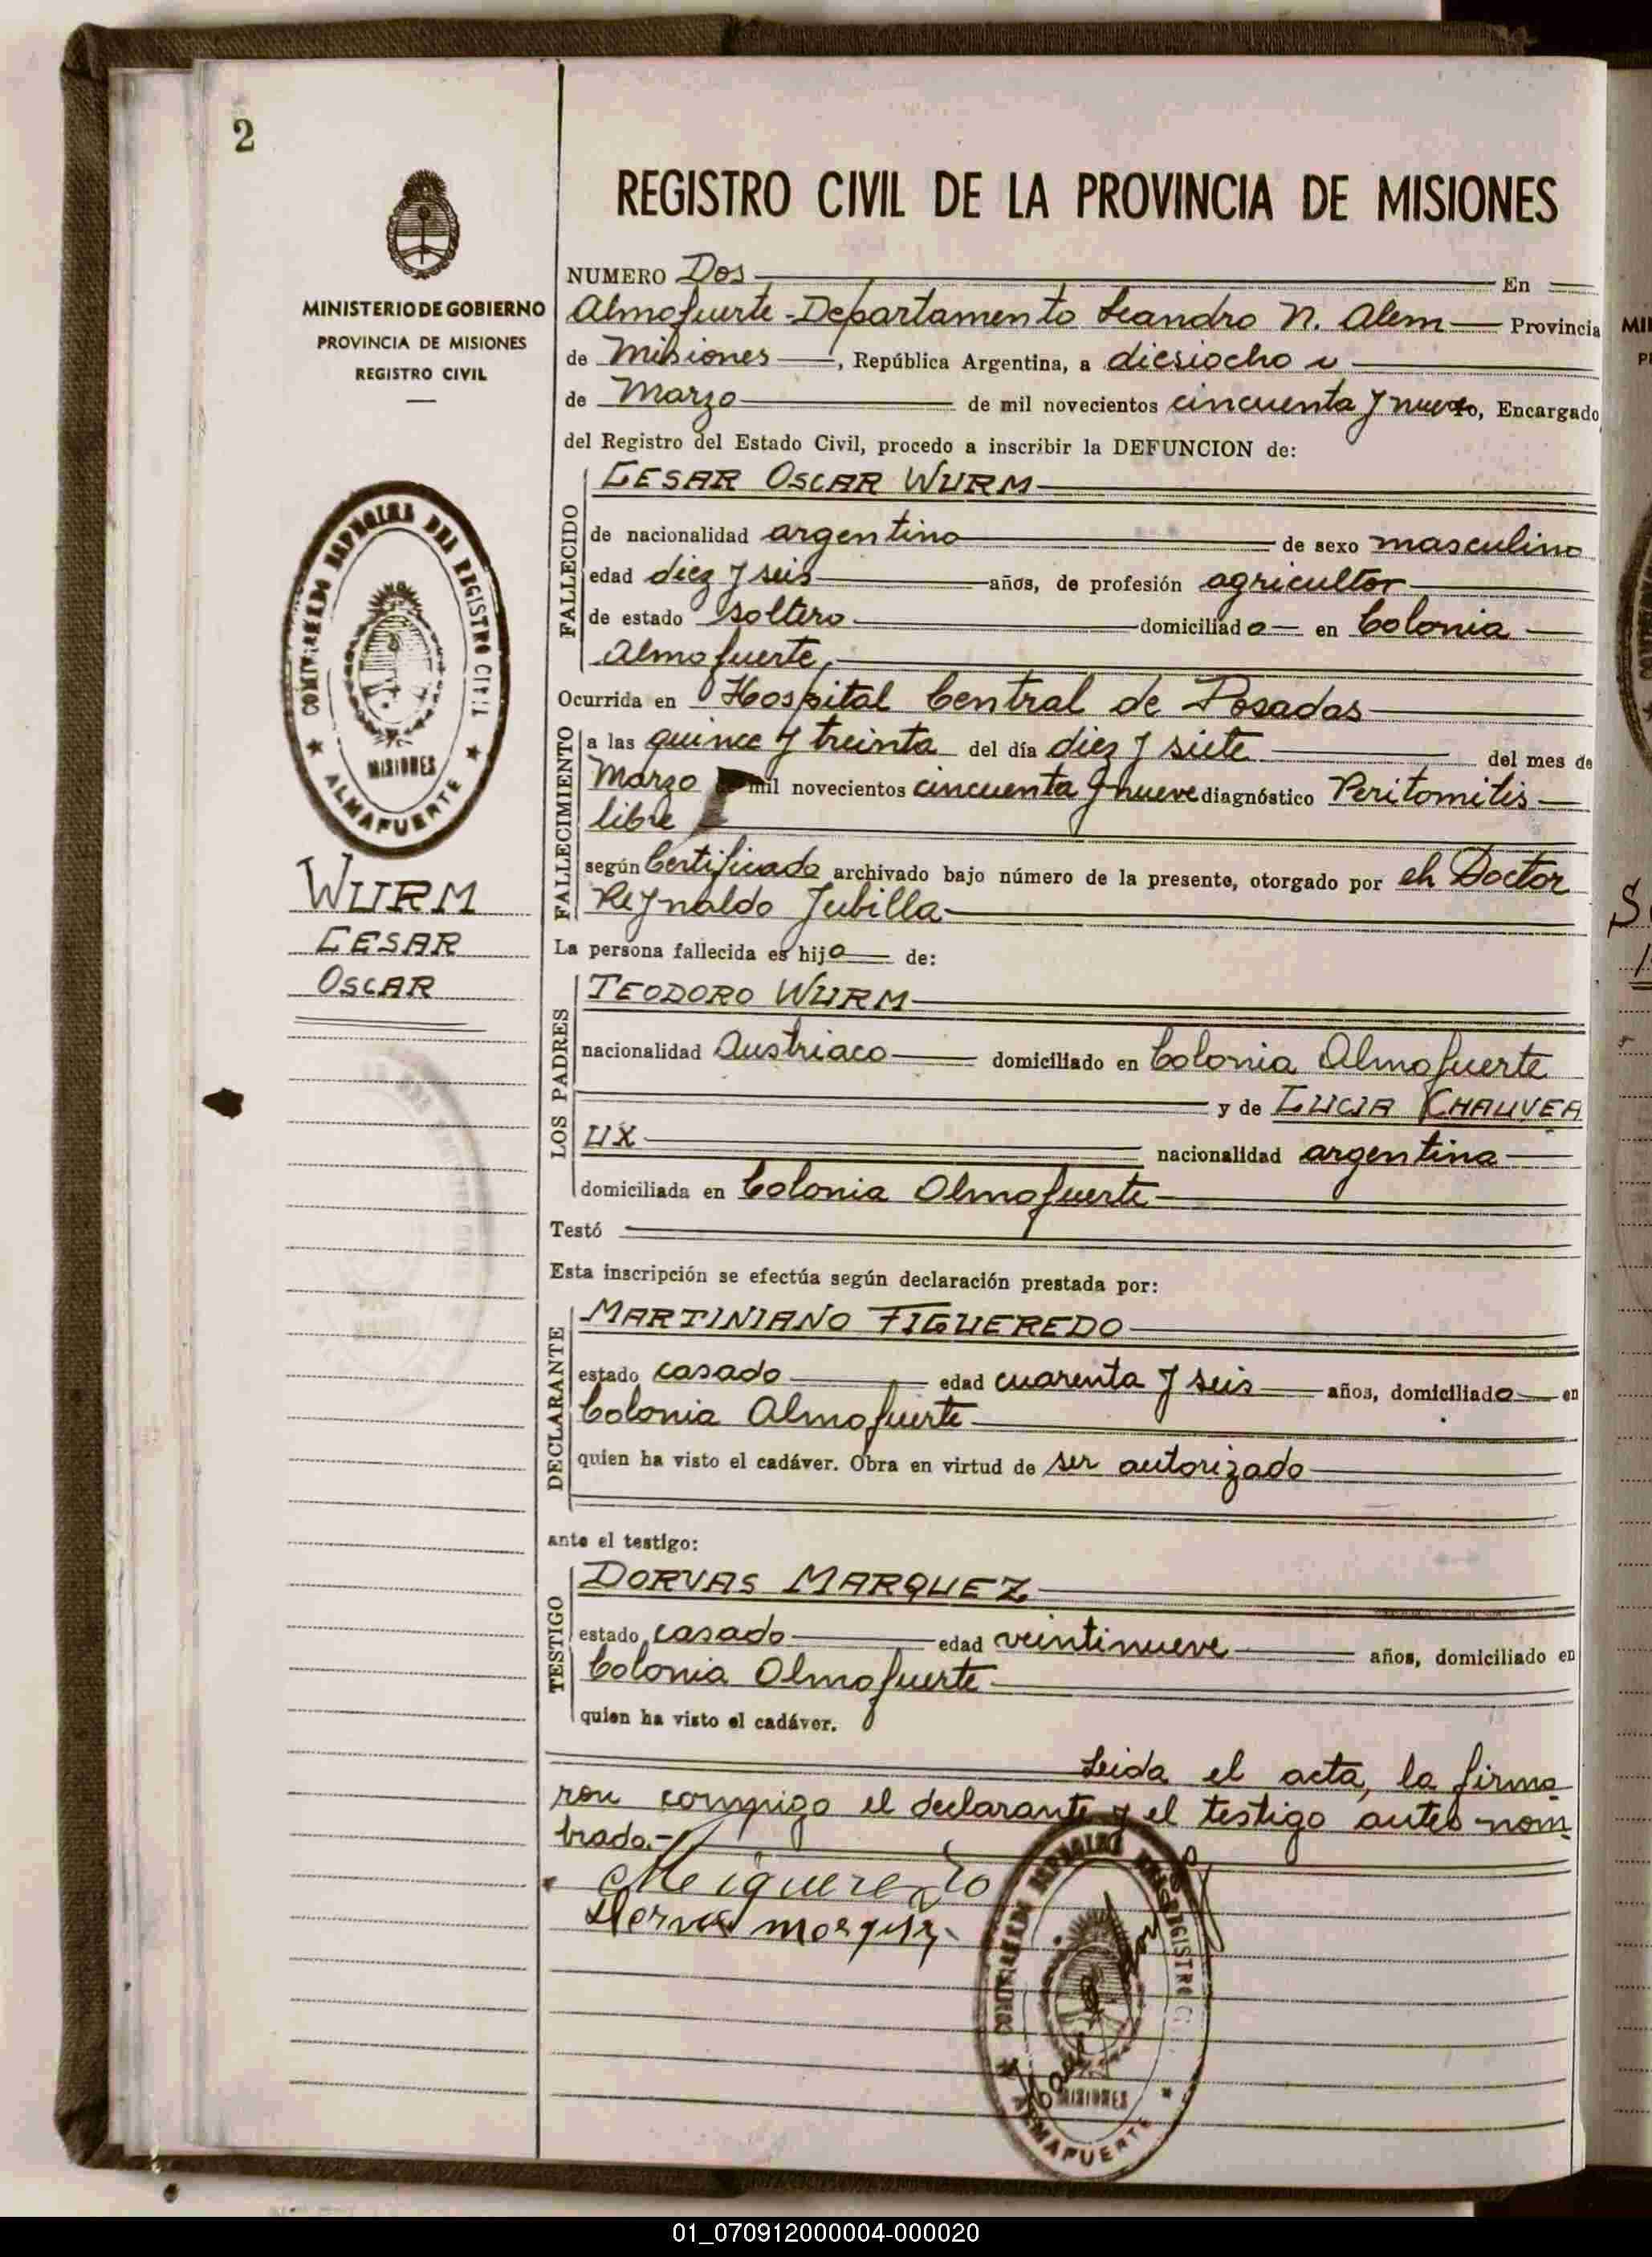 2
MINISTERIO DE GOBIERNO
PROVINCIA DE MISIONES
REGISTRO CIVIL
REGISTRO CIVIL DE LA PROVINCIA DE MISIONES
NUMERO Dos En
Almafuerte - Departamento Leandro N. Alem Provincia
de Misiones, República Argentina, a diesiocho
de Marzo de mil novecientos cincuenta y nueve, Encargado
del Registro del Estado Civil, procedo a inscribir la DEFUNCION de:
FALLECIDO
CESAR OSCAR WURM
de nacionalidad argentino de sexo masculino
edad diez y seis años, de profesión agricultor
de estado soltero domiciliado en Colonia
Almafuerte,
Ocurrida en Hospital Central de Posadas
FALLECIMIENTO
a las quince y treinta del día diez y siete del mes de
Marzo de mil novecientos cincuenta y nueve diagnóstico Peritomitis
libre
según Certificado archivado bajo número de la presente, otorgado por el Doctor
Reynaldo Jubilla
La persona fallecida es hijo de:
LOS PADRES
TEODORO WURM
nacionalidad Austriaco domiciliado en Colonia Almafuerte
y de LUCIA CHAUVEA
UX nacionalidad argentina
domiciliada en Colonia Almafuerte
Testó
Esta inscripción se efectúa según declaración prestada por:
DECLARANTE
MARTINIANO FIGUEREDO
estado casado edad cuarenta y seis años, domiciliado en
Colonia Almafuerte
quien ha visto el cadáver. Obra en virtud de ser autorizado
ante el testigo:
TESTIGO
DORVAS MARQUEZ
estado casado edad veintinueve años, domiciliado en
Colonia Almafuerte
quien ha visto el cadáver.
Leida el acta, la firma
ron conmigo el declarante y el testigo antes nom
brado.-
WURM
CESAR
OSCAR
REGISTRO CIVIL
MISIONES
★ ALMAFUERTE ★
MISIONES
ALMAFUERTE
01_070912000004-000020